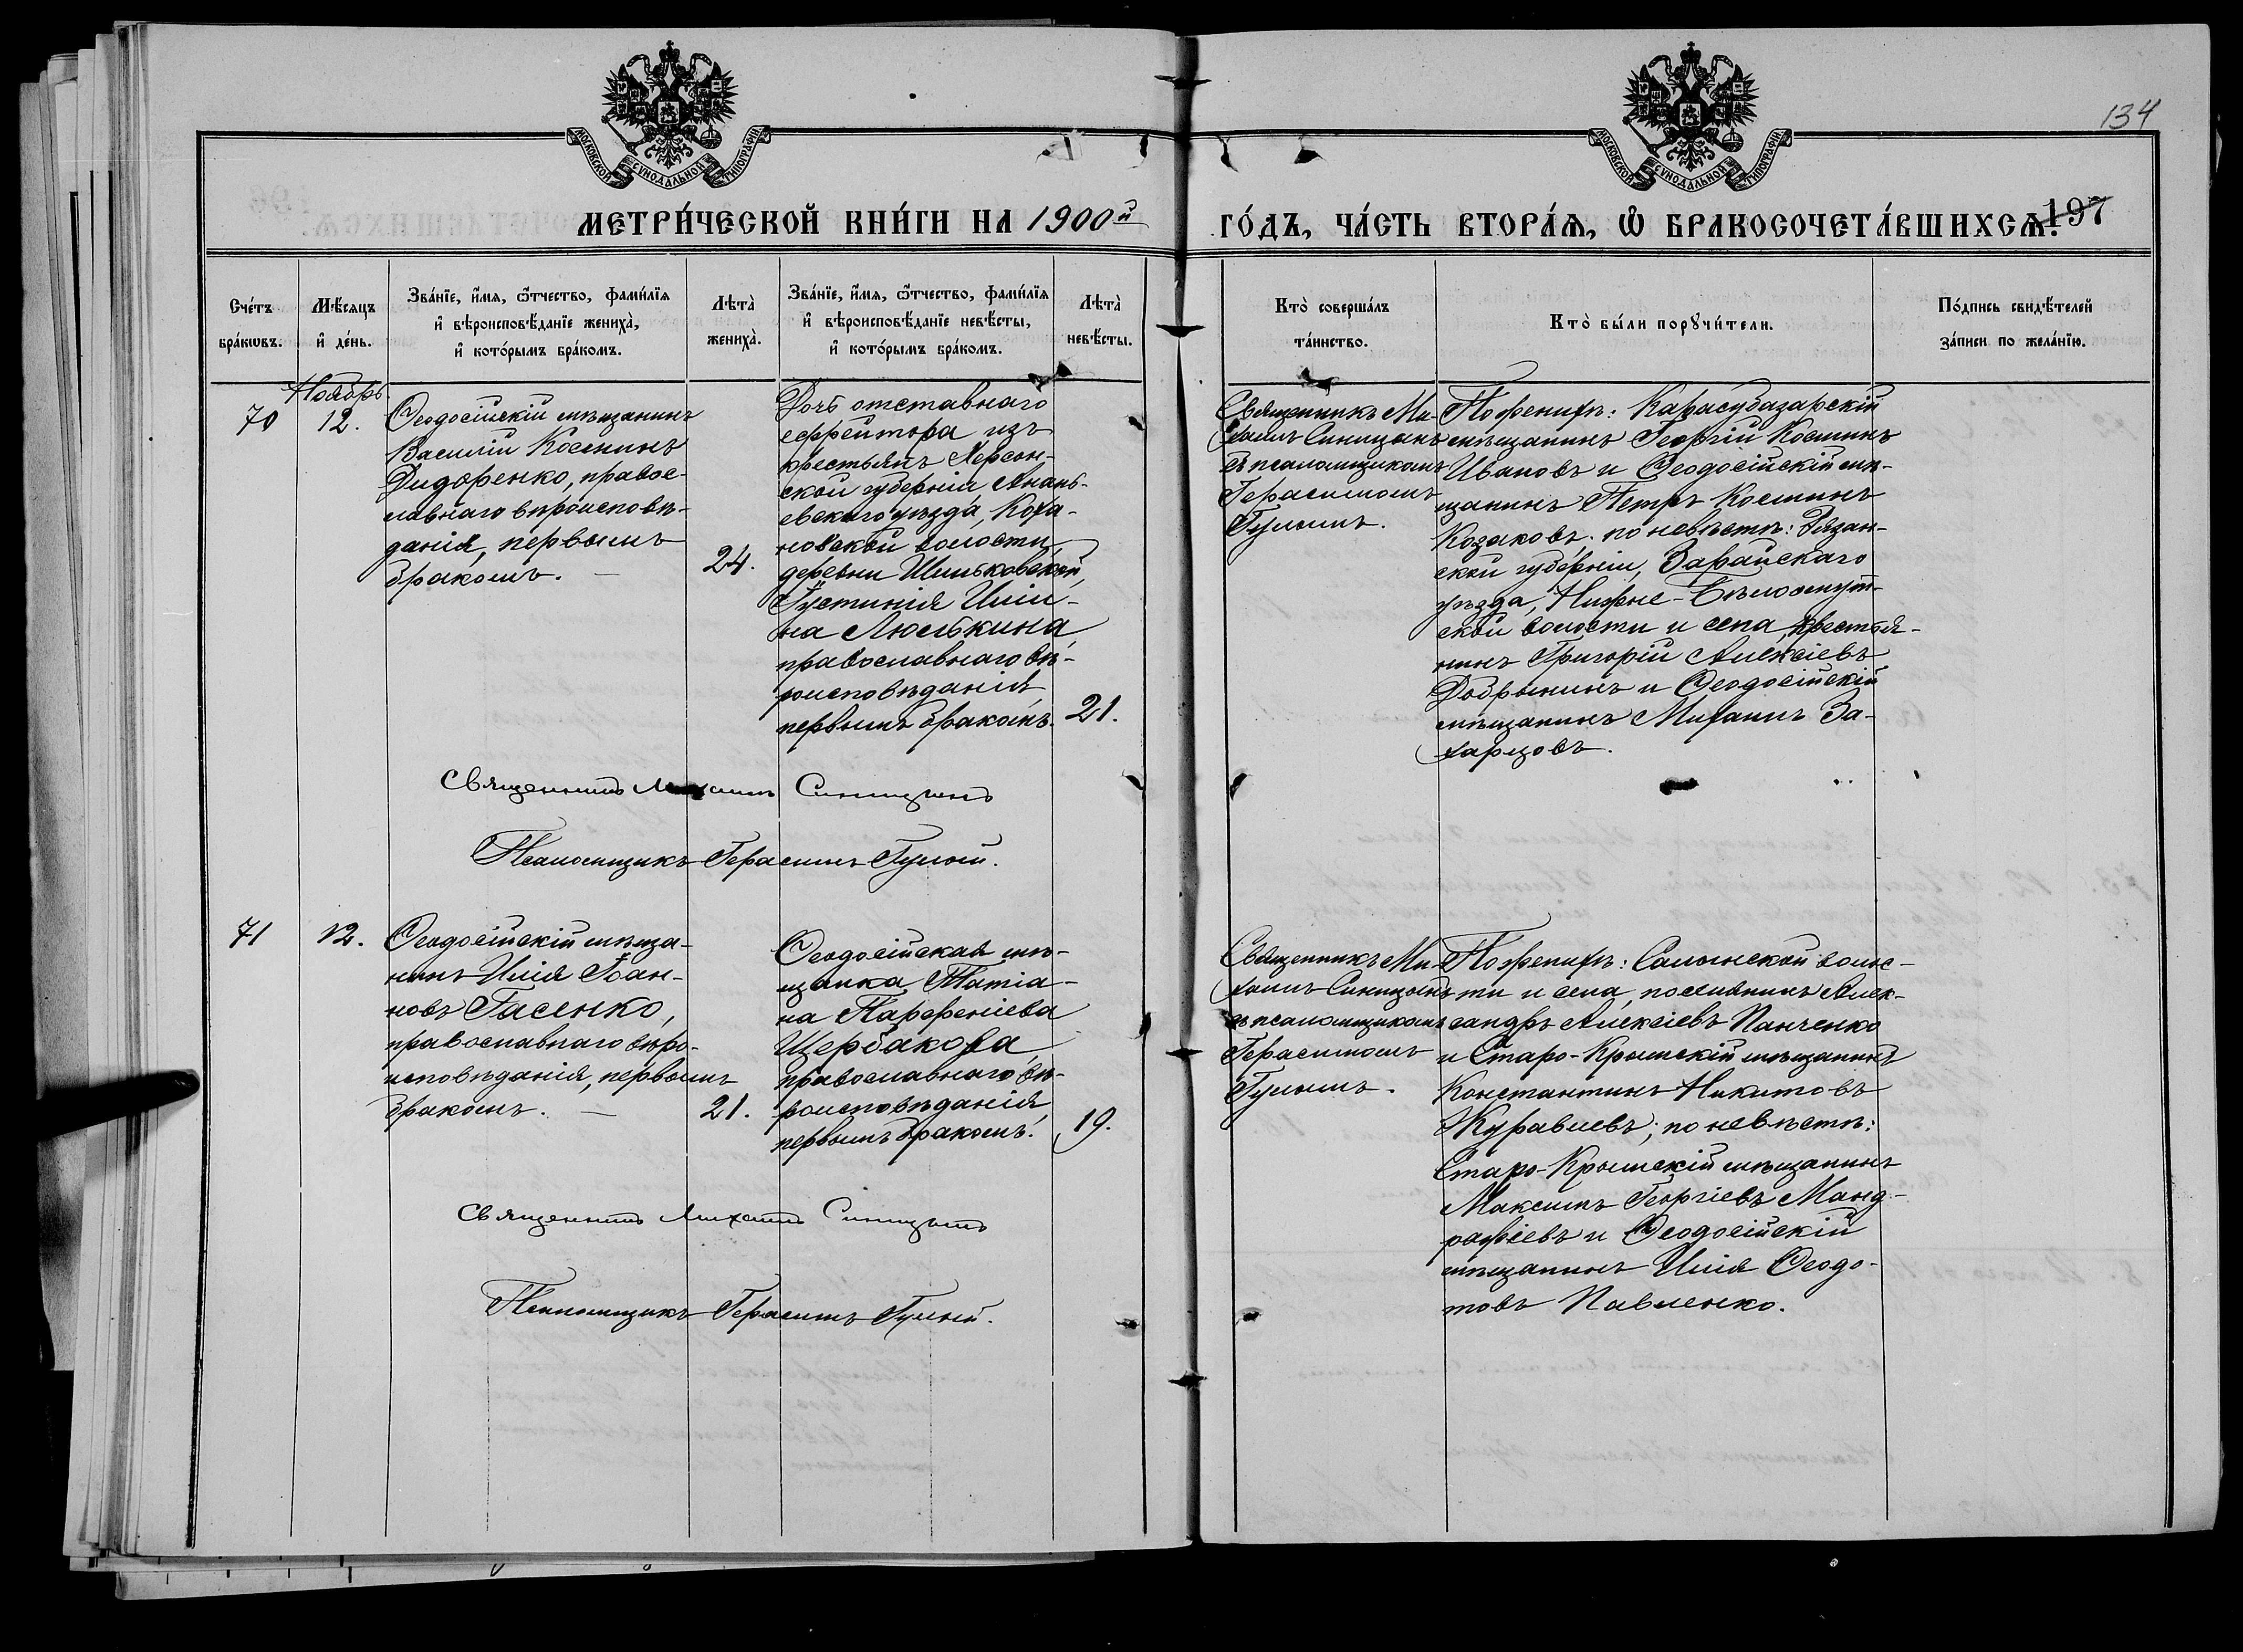 МОСКОВСКОЙ СУНОДАЛЬНОЙ ТИПОГРАФІИ
МОСКОВСКОЙ СУНОДАЛЬНОЙ ТИПОГРАФІИ
134
МЕТРИ́ЧЕСКОЙ КНИ́ГИ НА 1900й
ГО́ДЪ, ЧА́СТЬ ВТОРА́Ѧ, Ѡ҆ БРАКОСОЧЕТА́ВШИХСѦ.
197
Сче́тъ
бра́кѡвъ.
Мѣ́сяцъ
и҆ де́нь.
Зва́нїе, и҆́мя, ѻ҆́тчество, фамѝлїя
и҆ вѣроисповѣ́данїе женихà,
и҆ кото́рымъ бра́комъ.
Лѣ́тà
женихà.
Зва́нїе, и҆́мя, ѻ҆́тчество, фамѝлїя
и҆ вѣроисповѣ́данїе невѣ́сты,
и҆ кото́рымъ бра́комъ.
Лѣ́тà
невѣ́сты.
Кто̀ соверша́лъ
та́инство.
Кто̀ бы́ли порꙋчи́тели.
По́дпись свидѣ́телей
за́писи по жела́нїю.
Ноябрь
70
12.
Ѳеодосійскій мѣщанинъ
Василій Косминъ
Дидоренко, правос-
лавнаго вѣроисповѣ-
данія, первымъ
бракомъ. —
24.
Дочь отставнаго
ефрейтора изъ
крестьянъ Херсон-
ской губерніи, Анань-
евскаго уѣзда, Коха-
новской волости,
деревни
Іустинія Иліи-
на Люлькина
православнаго вѣ-
роисповѣданія,
первымъ бракомъ.
21.
Священникъ Ми-
хаилъ Синицынъ
съ псаломщикомъ
Герасимомъ
Гулымъ.
По женихѣ: Карасубазарскій
мѣщанинъ Георгій Косминъ
Ивановъ и Ѳеодосійскій мѣ-
щанинъ Петръ Косминъ
Козаковъ. по невѣстѣ: Рязан-
ской губерніи, Зарайскаго
уѣзда, Нижне-Бѣлоомут-
ской волости и села, крестья-
нинъ Григорій Алексіевъ
Добрынинъ и Ѳеодосійскій
мѣщанинъ Михаилъ За-
харцовъ.
Священникъ Михаилъ Синицынъ
Псаломщикъ Герасимъ Гулый.
71
12.
Ѳеодосійскій мѣща-
нинъ Илія Іоан-
новъ Гасенко,
православнаго вѣро-
исповѣданія, первымъ
бракомъ. —
21.
Ѳеодосійская мѣ-
щанка, Татіа-
на Парѳеніева
Щербакова,
православнаго вѣ-
роисповѣданія,
первымъ бракомъ.
19.
Священникъ Ми-
хаилъ Синицынъ
съ псаломщикомъ
Герасимомъ
Гулымъ.
По женихѣ: Салынской волос-
ти и села, поселянинъ Алек-
сандръ Алексіевъ Панченко
и Старо-Крымскій мѣщанинъ
Константинъ Никитовъ
Журавлевъ; по невѣстѣ:
Старо-Крымскій мѣщанинъ
Максимъ Георгіевъ Манд-
ражіевъ и Ѳеодосійскій
мѣщанинъ Илія Ѳеодо-
товъ Павленко.
Священникъ Михаилъ Синицынъ
Псаломщикъ Герасимъ Гулый.